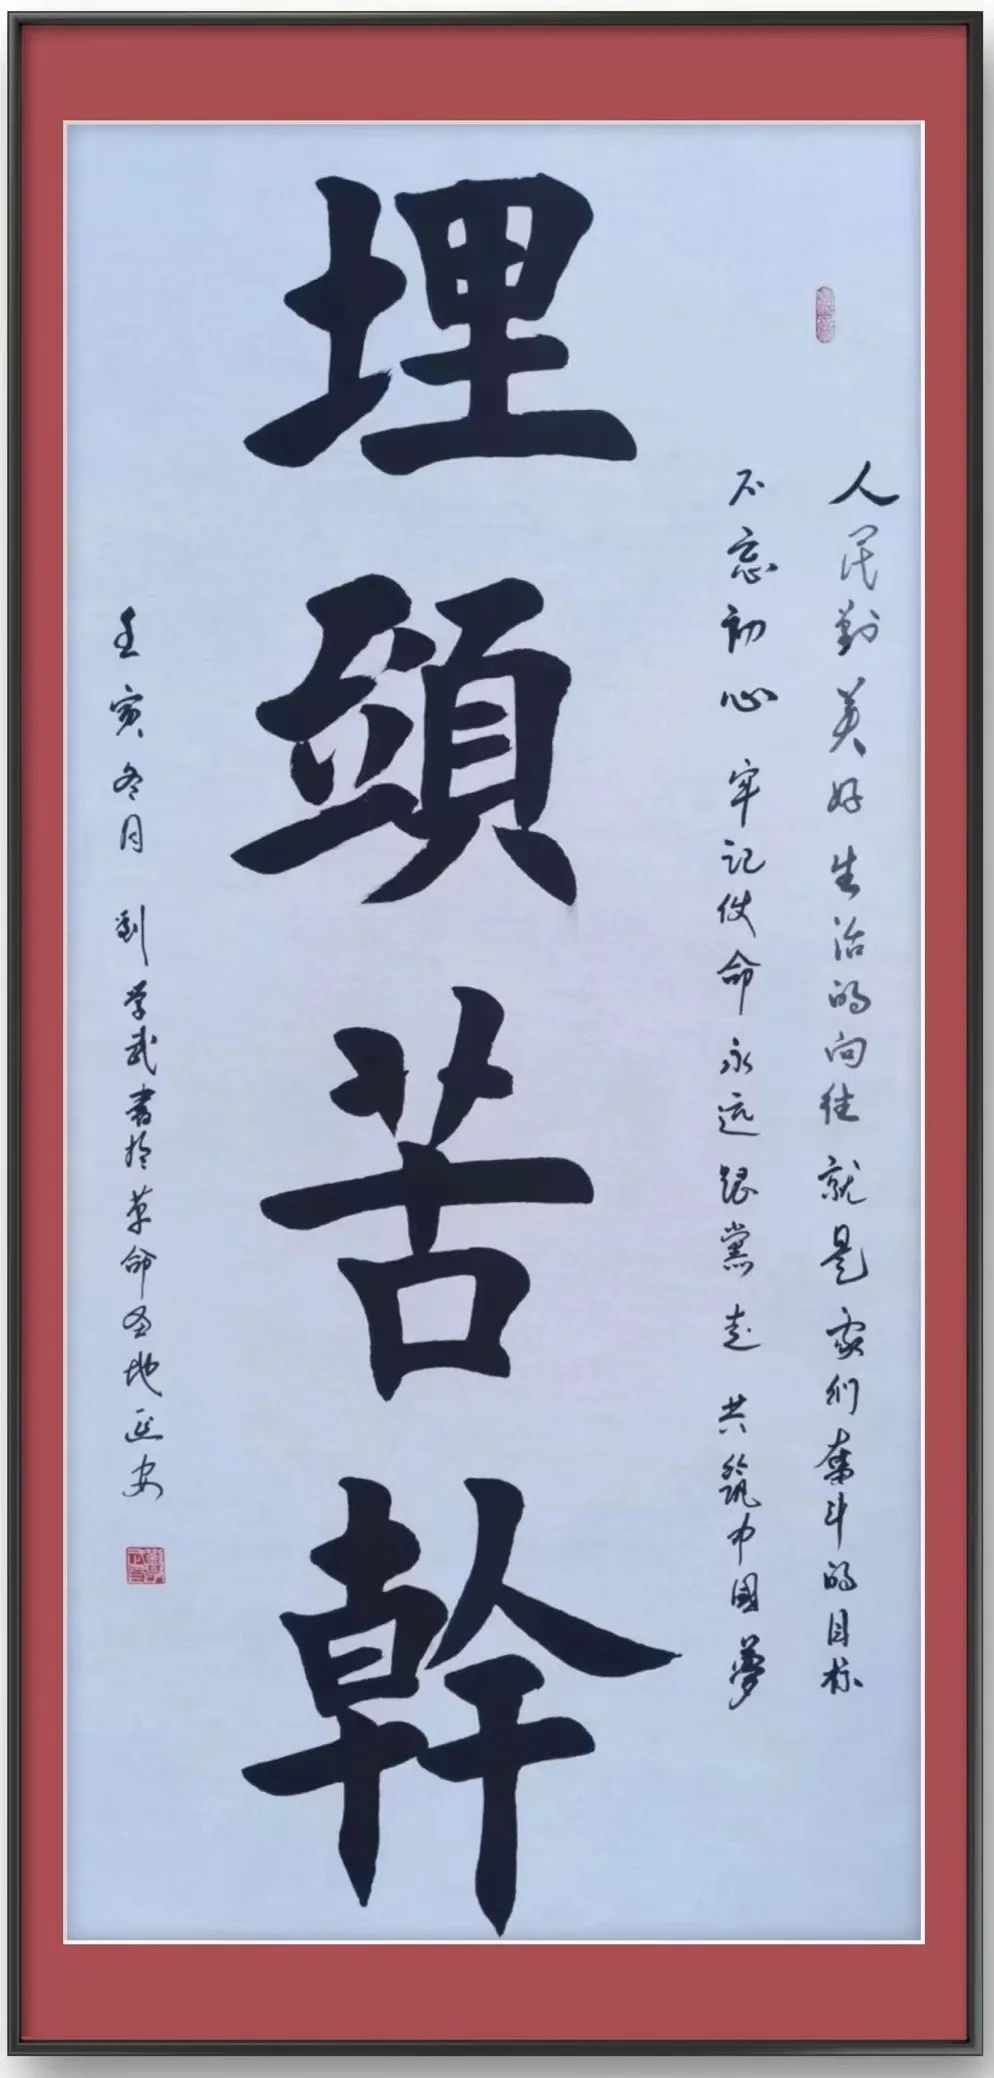 人民對美好生活的向往就是我们奮斗的目标
不忘初心牢记使命永远跟黨走共筑中國夢
埋頭苦幹
壬寅冬月劉学武書於革命圣地延安